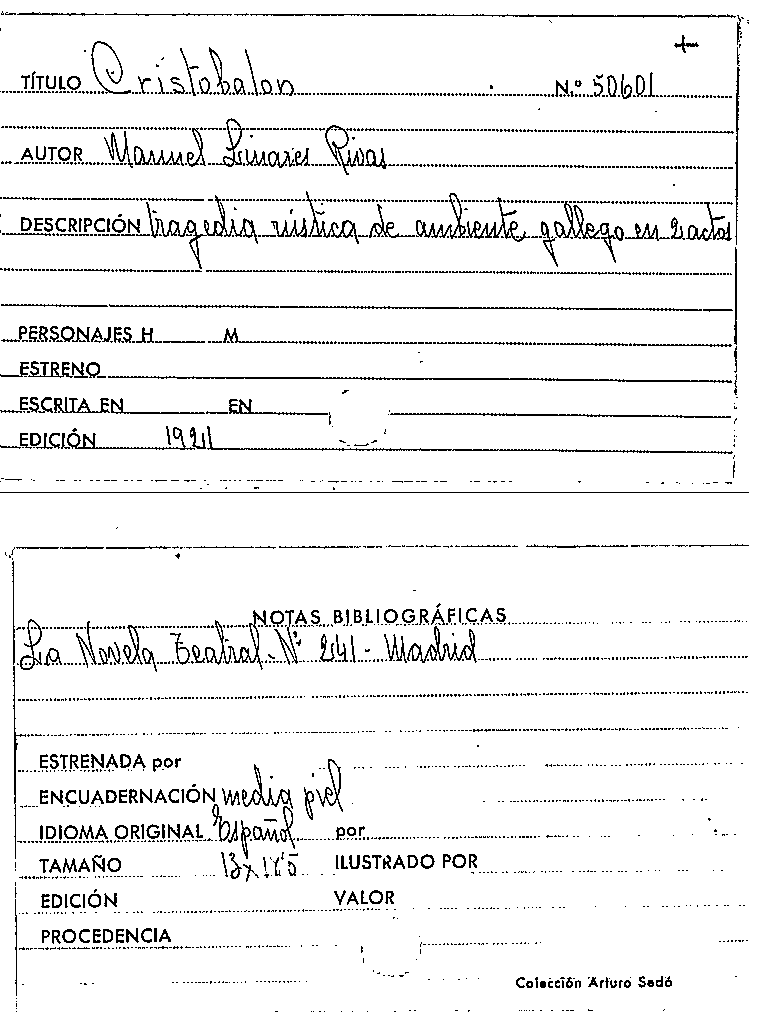 TÍTULO Cristobalon N.º 50601
AUTOR Manuel Linares Rivas
DESCRIPCIÓN tragedia rústica de ambiente gallego en 2 actos
PERSONAJES H M
ESTRENO
ESCRITA EN EN
EDICIÓN 1921
NOTAS BIBLIOGRÁFICAS
La Novela Teatral - Nº 241 - Madrid
ESTRENADA por
ENCUADERNACIÓN media piel
IDIOMA ORIGINAL Español por
TAMAÑO ILUSTRADO POR
EDICIÓN VALOR
PROCEDENCIA
Colección Arturo Sedó